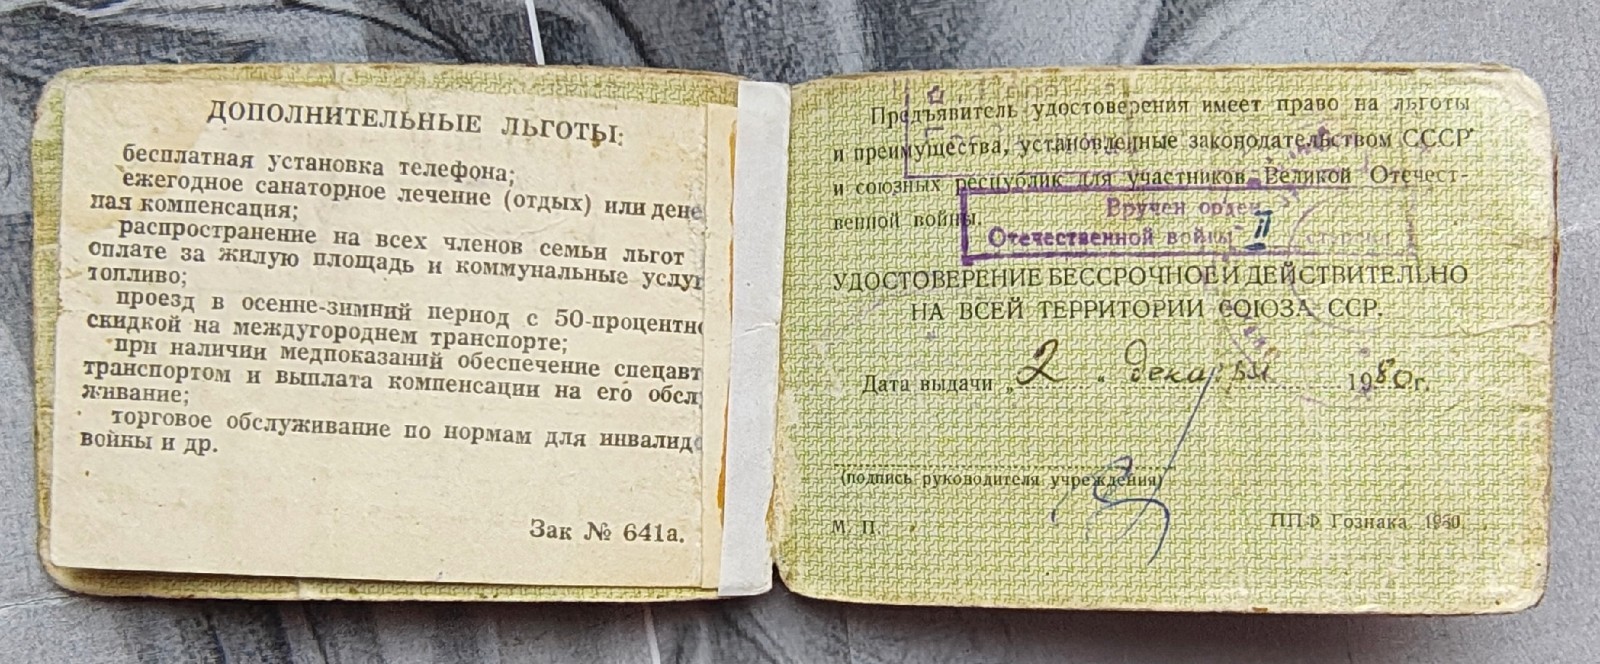 ДОПОЛНИТЕЛЬНЫЕ ЛЬГОТЫ:
бесплатная установка телефона;
ежегодное санаторное лечение (отдых) или дене
ная компенсация;
распространение на всех членов семьи льгот
оплате за жилую площадь и коммунальные услуг
топливо;
проезд в осенне-зимний период с 50-процентн
скидкой на междугороднем транспорте;
при наличии медпоказаний обеспечение спецавт
транспортом и выплата компенсации на его обсл
живание;
торговое обслуживание по нормам для инвалидо
войны и др.
Зак № 641а.
Предъявитель удостоверения имеет право на льготы
и преимущества, установленные законодательством СССР
и союзных республик для участников Великой Отечест-
венной войны.
Вручен орден
Отечественной войны II степени
УДОСТОВЕРЕНИЕ БЕССРОЧНОЕ И ДЕЙСТВИТЕЛЬНО
НА ВСЕЙ ТЕРРИТОРИИ СОЮЗА ССР.
Дата выдачи „2" декабря 1980г.
(подпись руководителя учреждения)
М. П.
ППФ Гознака. 1980.